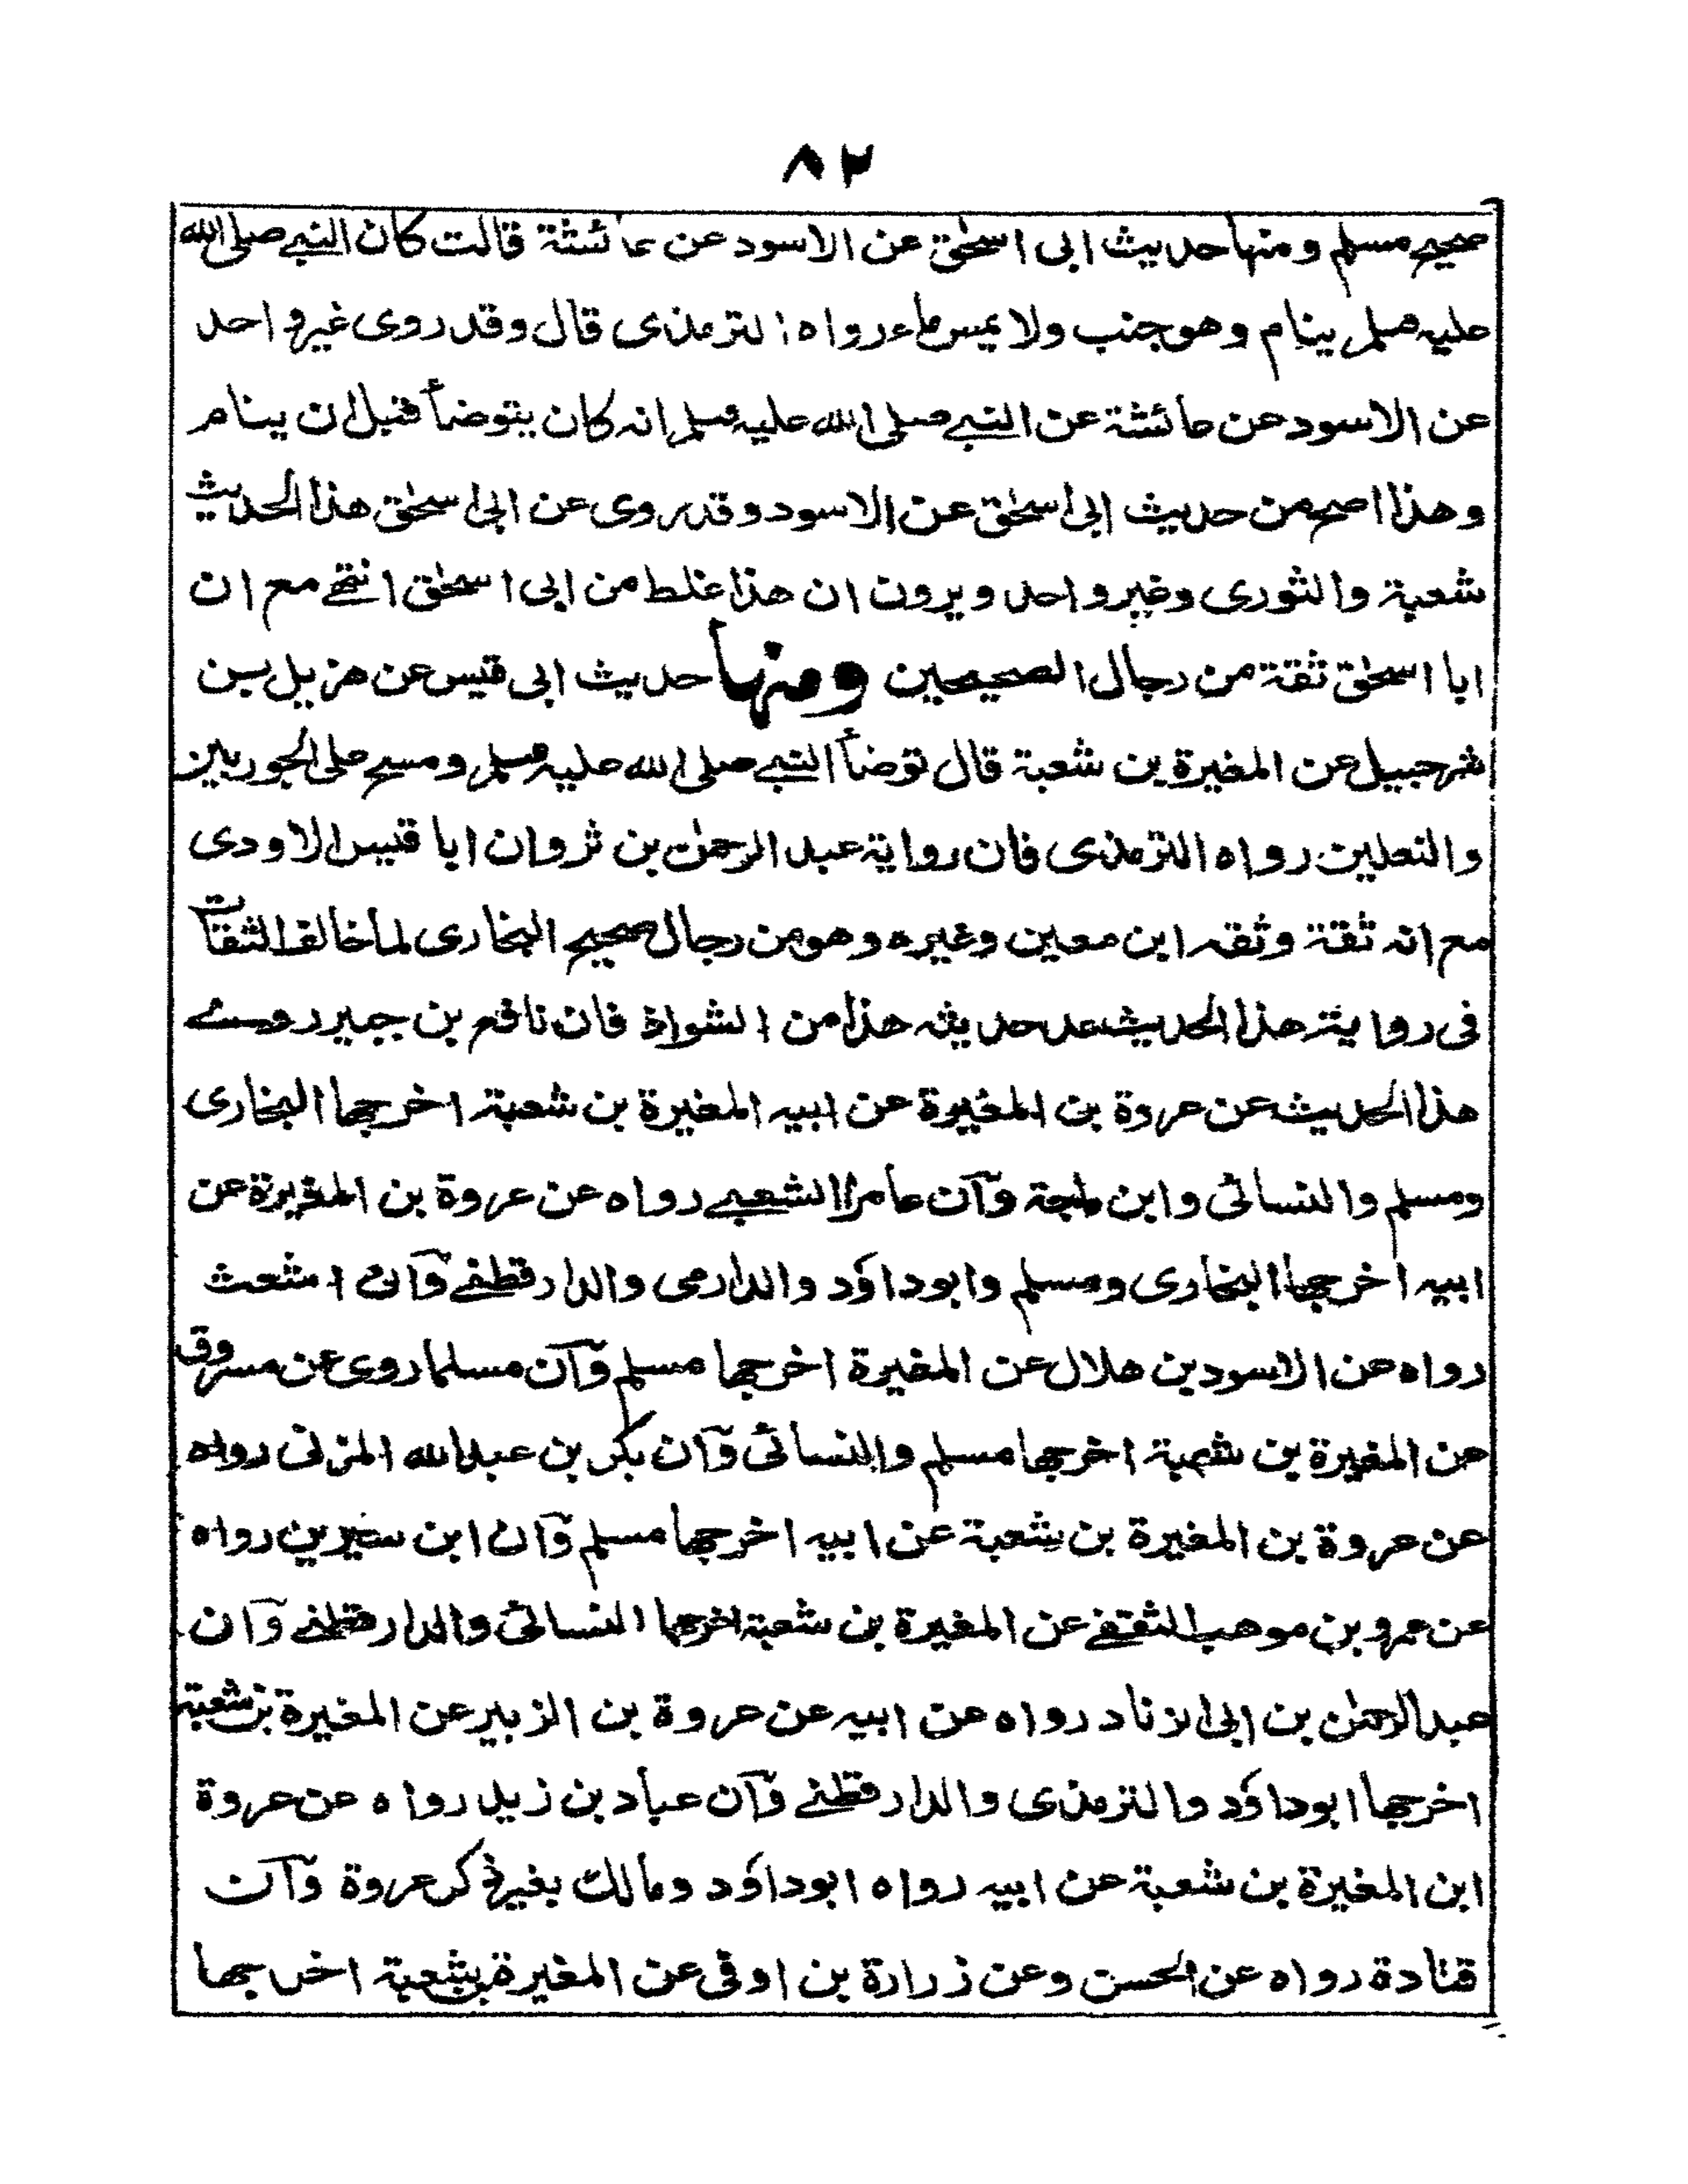 ٨٢
صحيح مسلم ومنها حديث ابى اسحٰق عن الاسود عن عائشة قالت كان النبي صلى الله
عليه وسلم ينام وهو جنب ولا يمس ماء رواه الترمذى قال وقد روى غير واحد
عن الاسود عن عائشة عن النبي صلى الله عليه وسلم انه كان يتوضأ قبل ان ينام
وهذا اصح من حديث ابى اسحٰق عن الاسود وقد روى عن ابى اسحٰق هذا الحديث
شعبة والثورى وغير واحد ويرون ان هذا غلط من ابى اسحٰق انتهى مع ان
ابا اسحٰق ثقة من رجال الصحيحين ومنها حديث ابى قيس عن هزيل بن
شرحبيل عن المغيرة بن شعبة قال توضأ النبي صلى الله عليه وسلم ومسح على الجوربين
والنعلين رواه الترمذى فان رواية عبد الرحمٰن بن ثروان ابا قيس الاودى
مع انه ثقة وثقه ابن معين وغيره وهو من رجال صحيح البخارى لما خالف الثقات
فى رواية هذا الحديث عد حديثه هذا من الشواذ فان نافع بن جبير روى
هذا الحديث عن عروة بن المغيرة عن ابيه المغيرة بن شعبة اخرجها البخارى
ومسلم والنسائى وابن ماجة وآن عامرا الشعبي رواه عن عروة بن المغيرة عن
ابيه اخرجها البخارى ومسلم وابو داؤد والدارمى والدارقطنے وآن اشعث
رواه عن الاسود بن هلال عن المغيرة اخرجها مسلم وآن مسلما روى عن مسروق
عن المغيرة بن شعبة اخرجها مسلم والنسائى وآن بكر بن عبد الله المزنى رواه
عن عروة بن المغيرة بن شعبة عن ابيه اخرجها مسلم وآن ابن سيرين رواه
عن عمرو بن موهب الثقفے عن المغيرة بن شعبة اخرجها النسائى والدارقطنے وآن
عبد الرحمٰن بن ابى الزناد رواه عن ابيه عن عروة بن الزبير عن المغيرة بن شعبة
اخرجها ابو داؤد والترمذى والدارقطنے وآن عباد بن زيد رواه عن عروة
ابن المغيرة بن شعبة عن ابيه رواه ابو داؤد ومالك بغير ذكر عروة وآن
قتادة رواه عن الحسن وعن زرارة بن اوفى عن المغيرة بن شعبة اخرجها